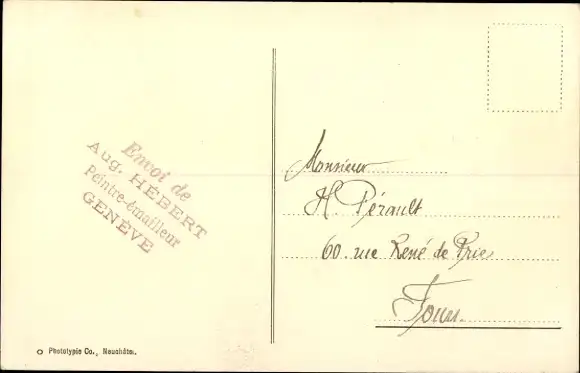 Envoi de
Aug. HÉBERT
Peintre-émailleur
GENÈVE
Monsieur
H. Pérault
60. rue René de Prie
Tours.
Phototypie Co., Neuchâtel.